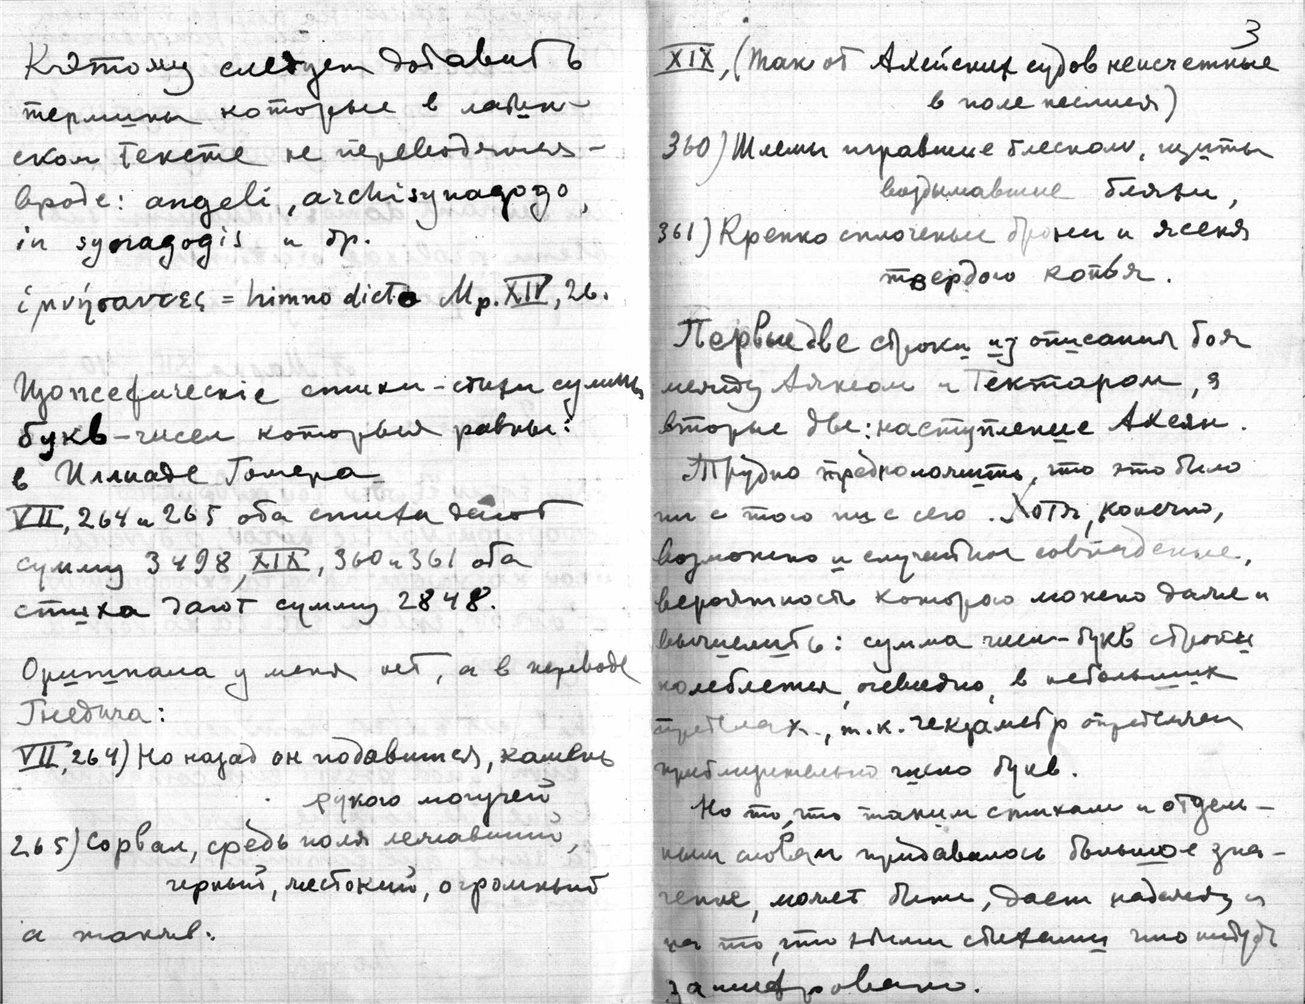 К этому следует добавить
термины которые в латин-
ском тексте не переводятся –
вроде: angeli, archisynagogo,
in synagogis и др.
ίμνήσαντες = himno dicto Мр. XIV, 26.
Изопсефические стихи – стихи суммы
букв – чисел которых равны:
в Иллиаде Гомера
VII, 264 и 265 оба стиха дают
сумму 3498, XIX, 360 и 361 оба
стиха дают сумму 2848.
Оригинала у меня нет, а в переводе
Гнедича:
VII, 264) Но назад он подавшися, камень
рукою могучей
265) Сорвал, средь поля лежавший,
черный, жестокий, огромный
а также:
3
XIX, (Так от Ахейских судов неисчетные
в поле неслися)
360) Шлемы игравшие блеском, щиты
воздымавшие бляхи,
361) Крепко сплоченые брони и ясеня
твердого копья.
Первые две строки из описания боя
между Аяксом и Гектаром, а
вторые две: наступление Ахеян.
Трудно предположить, что это было
ни с того ни с сего. Хотя, конечно,
возможно и случайное совпадение,
вероятность которого можно даже и
вычислить: сумма чисел-букв строки
колеблется, очевидно, в небольших
пределах, т.к. гекзаметр определяет
приблизительно число букв.
Но то, что таким стихам и отдель-
ным словам придавалось большое зна-
чение, может быть, дает надежду и
на то, что этими стихами что нибудь
зашифровано.